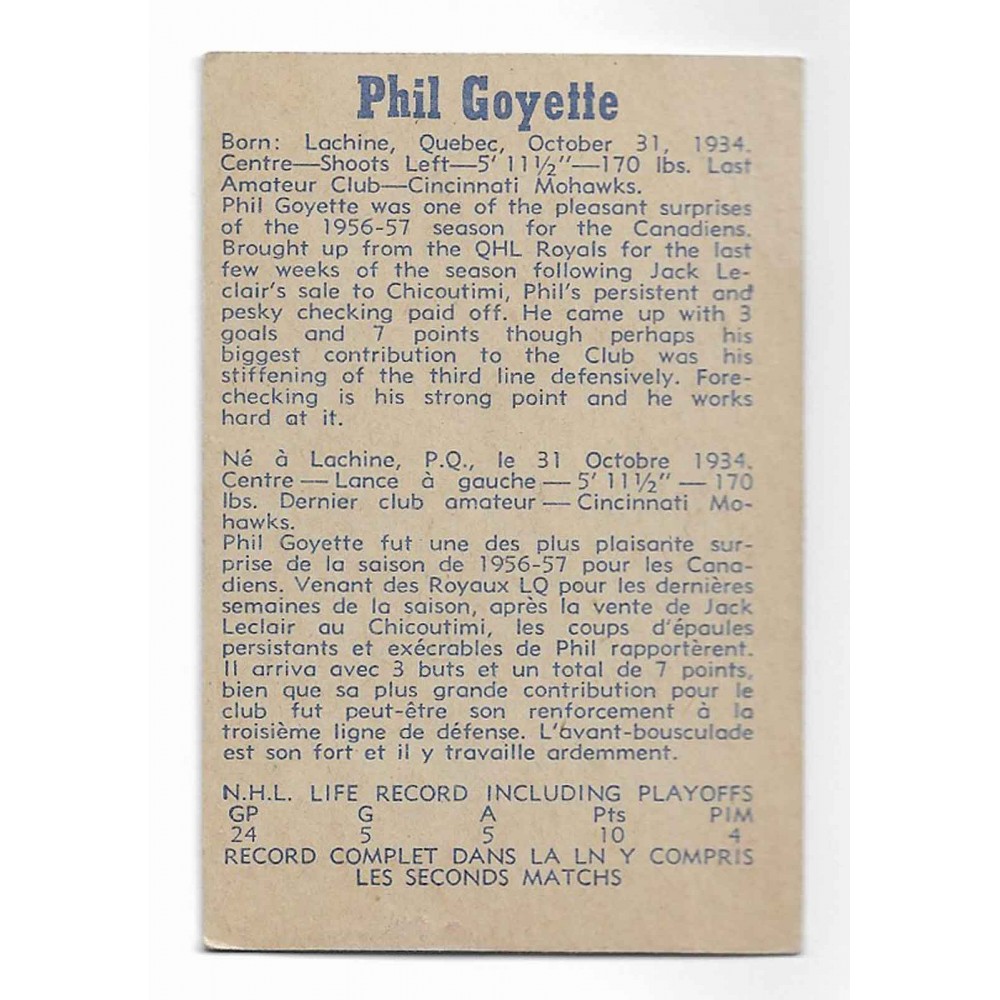 Phil Goyette
Born: Lachine, Quebec, October 31, 1934.
Centre—Shoots Left—5' 11½"—170 lbs. Last
Amateur Club—Cincinnati Mohawks.
Phil Goyette was one of the pleasant surprises
of the 1956-57 season for the Canadiens.
Brought up from the QHL Royals for the last
few weeks of the season following Jack Le-
clair's sale to Chicoutimi, Phil's persistent and
pesky checking paid off. He came up with 3
goals and 7 points though perhaps his
biggest contribution to the Club was his
stiffening of the third line defensively. Fore-
checking is his strong point and he works
hard at it.
Né à Lachine, P.Q., le 31 Octobre 1934.
Centre — Lance à gauche — 5' 11½" — 170
lbs. Dernier club amateur — Cincinnati Mo-
hawks.
Phil Goyette fut une des plus plaisante sur-
prise de la saison de 1956-57 pour les Cana-
diens. Venant des Royaux LQ pour les dernières
semaines de la saison, après la vente de Jack
Leclair au Chicoutimi, les coups d'épaules
persistants et exécrables de Phil rapportèrent.
Il arriva avec 3 buts et un total de 7 points,
bien que sa plus grande contribution pour le
club fut peut-être son renforcement à la
troisième ligne de défense. L'avant-bousculade
est son fort et il y travaille ardemment.
N.H.L. LIFE RECORD INCLUDING PLAYOFFS
GP G A Pts PIM
24 5 5 10 4
RECORD COMPLET DANS LA LN Y COMPRIS
LES SECONDS MATCHS